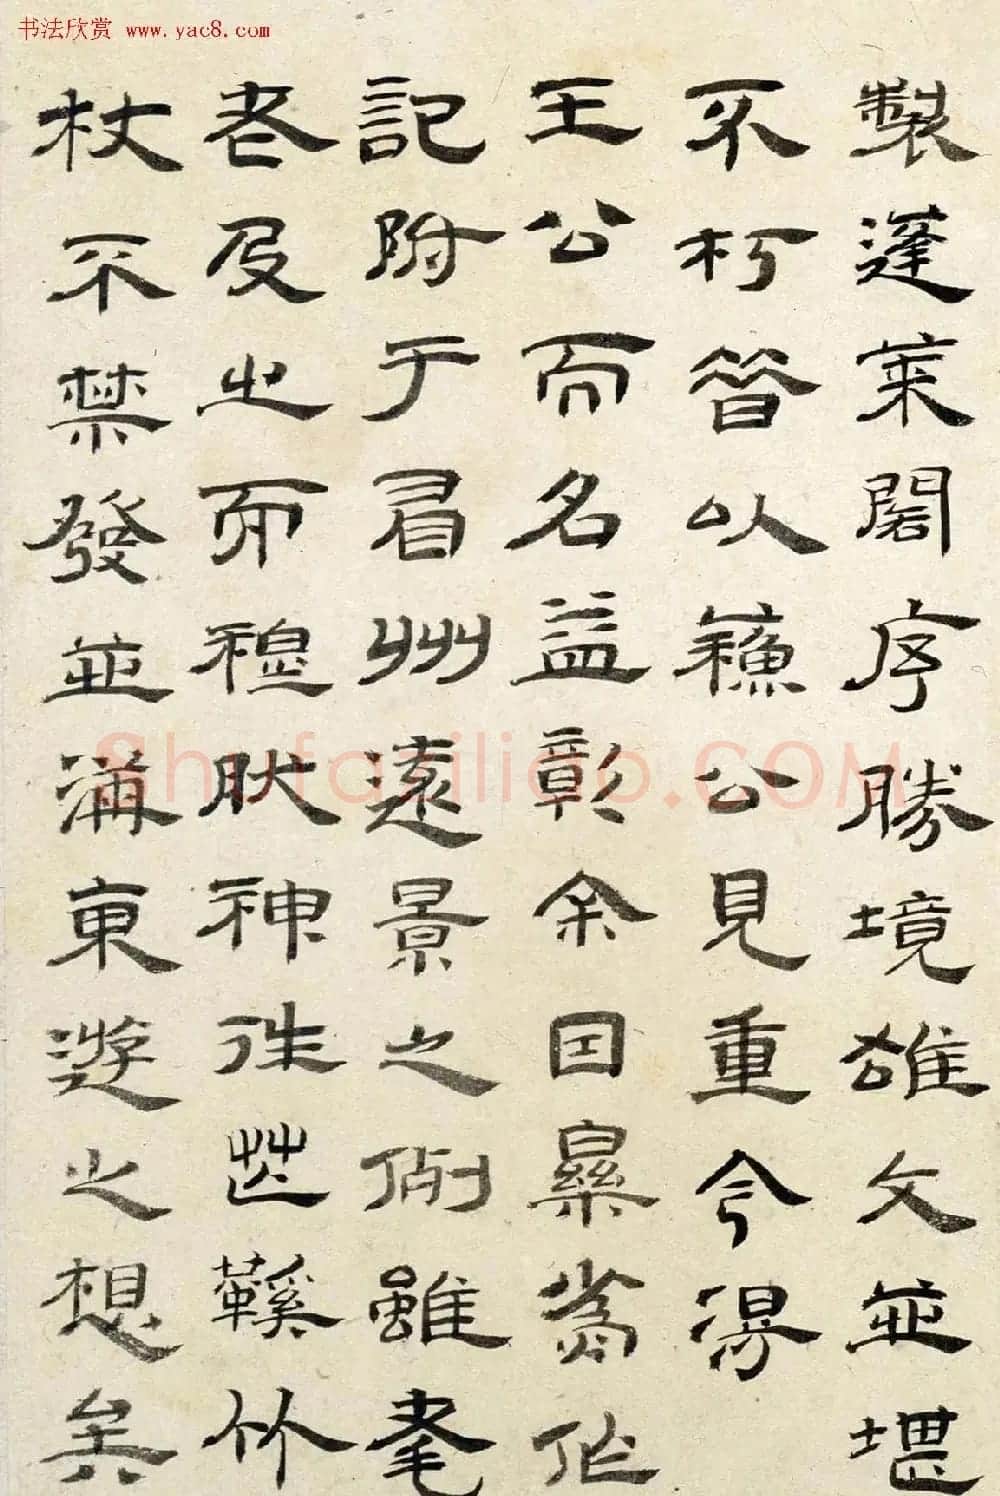 书法欣赏 www.yac8.com
製蓬莱閣序勝境雄文並堪
不朽昔以蘓公見重今得
王公而名益彰余因作
記附于眉州遠景之例雖耄
老及之而穆肰神往芒鞵竹
杖不禁發並東遊之想矣
shufaziliao.COM